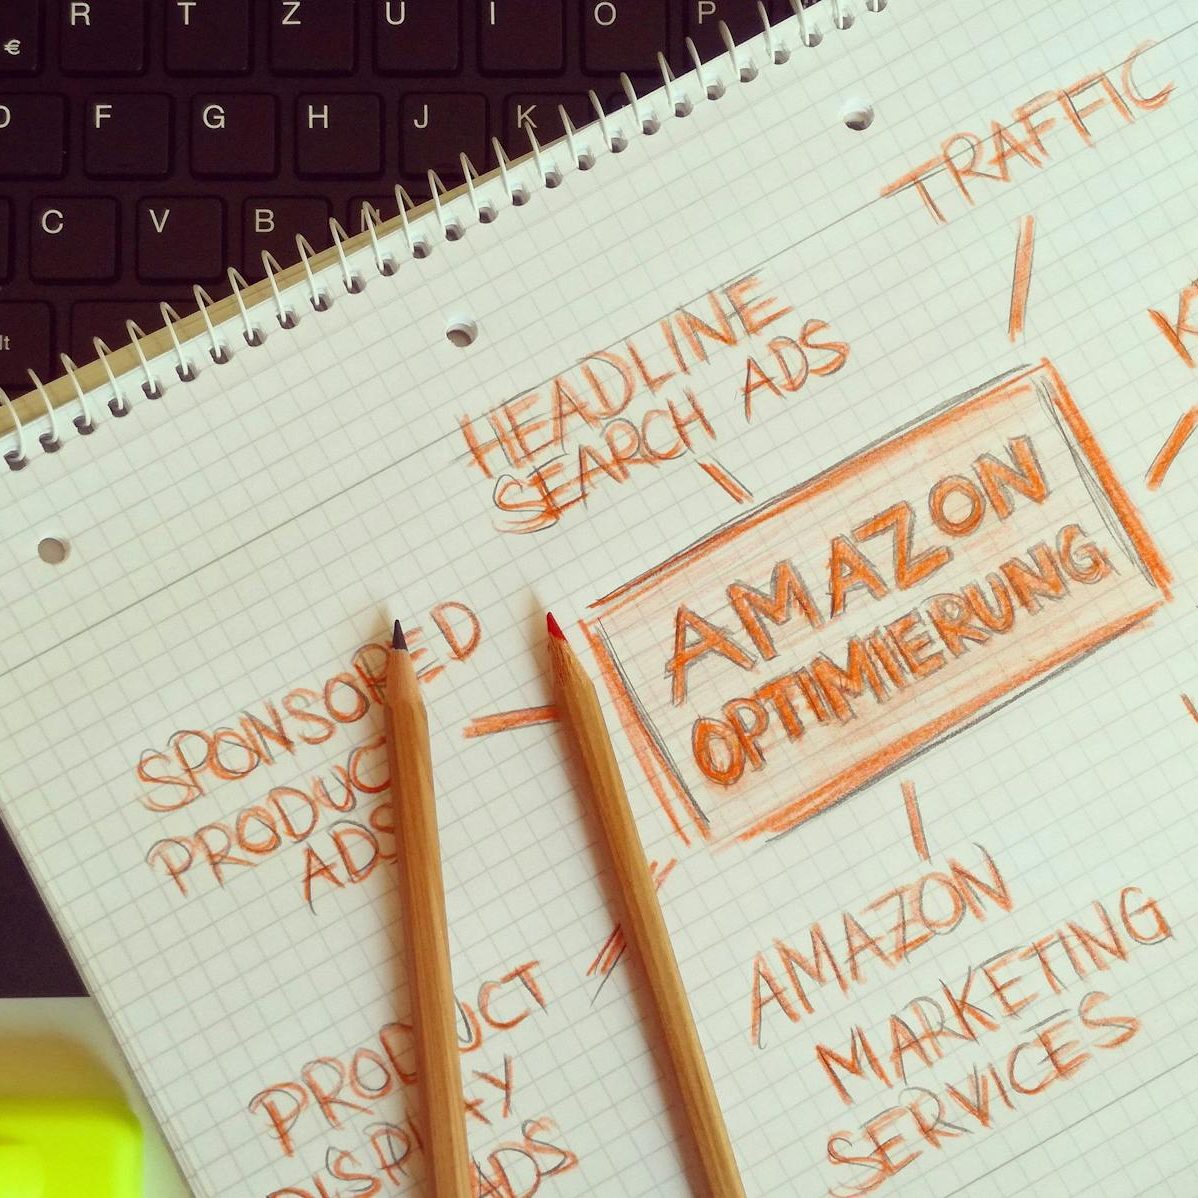 R T Z U I O P
€
D F G H J K
C V B N
TRAFFIC
HEADLINE
SEARCH ADS
K
AMAZON
OPTIMIERUNG
SPONSORED
PRODUCT
ADS
AMAZON
MARKETING
SERVICES
PRODUCT
DISPLAY
ADS